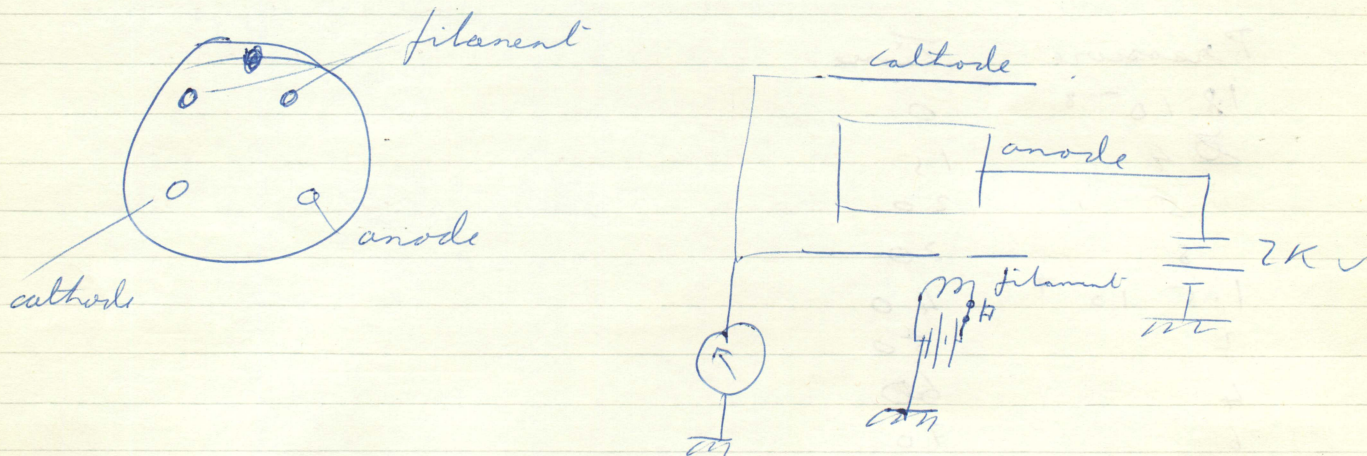 filament
cathode
anode
cathode
anode
filament
2 K V